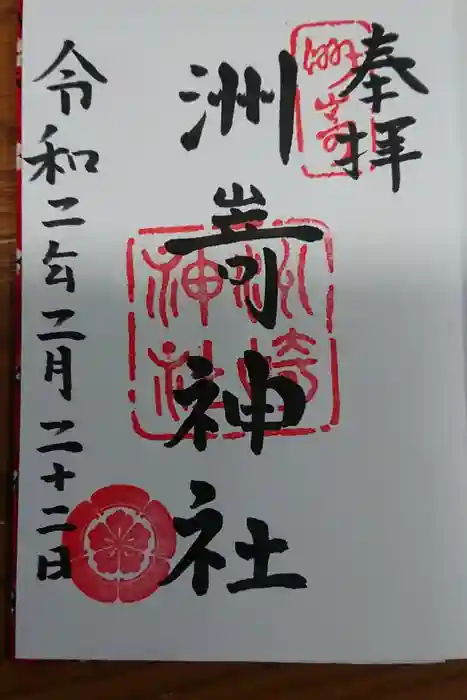 奉拝
洲嵜
洲嵜神社
洲崎神社
令和二年二月二十二日